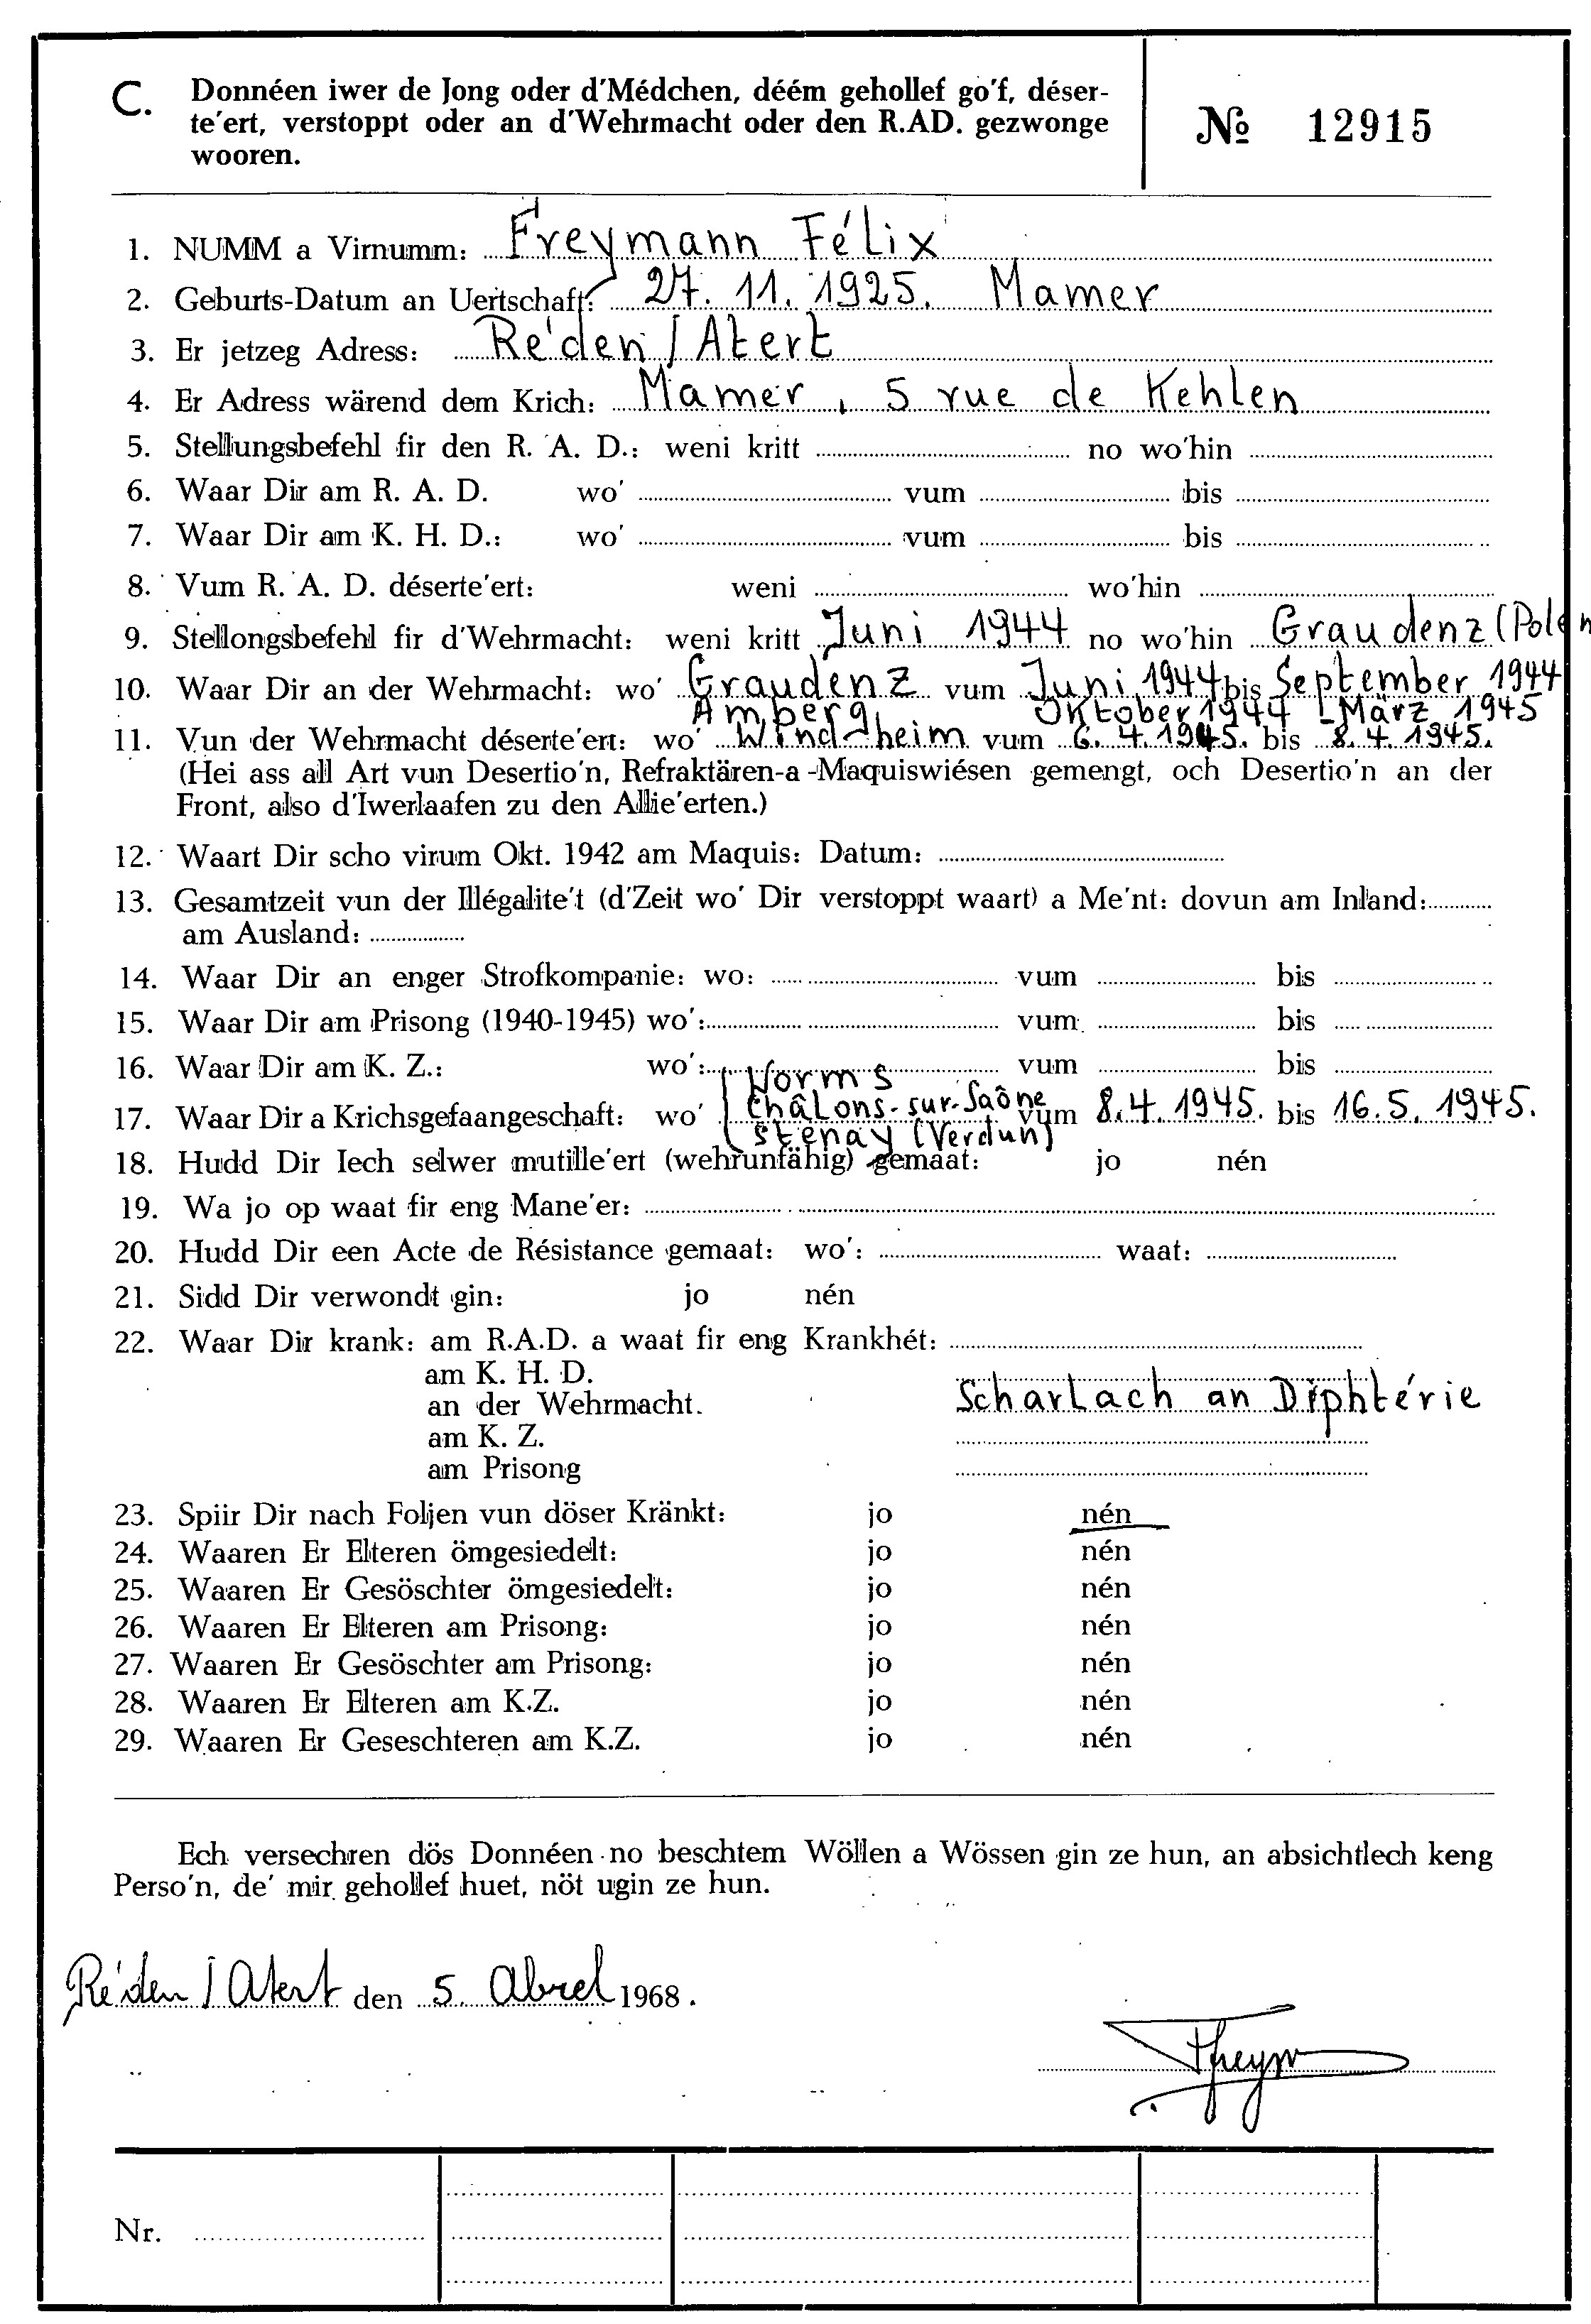 C. Donnéen iwer de Jong oder d'Médchen, déém gehollef go'f, déser-
te'ert, verstoppt oder an d'Wehrmacht oder den R.AD. gezwonge
wooren.
№ 12915
1. NUMM a Virnumm: Freymann Félix
2. Geburts-Datum an Uertschaft: 27. 11. 1925. Mamer
3. Er jetzeg Adress: Ré'den / Atert
4. Er Adress wärend dem Krich: Mamer, 5 rue de Kehlen
5. Stellungsbefehl fir den R. A. D.: weni kritt no wo'hin
6. Waar Dir am R. A. D. wo' vum bis
7. Waar Dir am K. H. D.: wo' vum bis
8. Vum R. A. D. déserte'ert: weni wo'hin
9. Stellongsbefehl fir d'Wehrmacht: weni kritt Juni 1944 no wo'hin Graudenz (Polen
10. Waar Dir an der Wehrmacht: wo' Graudenz vum Juni 1944 bis September 1944
Amberg Oktober 1944 - März 1945
11. Vun der Wehrmacht déserte'ert: wo' Windheim vum 6. 4. 1945. bis 8. 4. 1945.
(Hei ass all Art vun Desertio'n, Refraktären-a-Maquiswiésen gemengt, och Desertio'n an der
Front, also d'Iwerlaafen zu den Allie'erten.)
12. Waart Dir scho virum Okt. 1942 am Maquis: Datum:
13. Gesamtzeit vun der Illégalite't (d'Zeit wo' Dir verstoppt waart) a Me'nt: dovun am Inland:
am Ausland:
14. Waar Dir an enger Strofkompanie: wo: vum bis
15. Waar Dir am Prisong (1940-1945) wo': vum bis
16. Waar Dir am K. Z.: wo': vum bis
Worms
17. Waar Dir a Krichsgefaangeschaft: wo' Châlons-sur-Saône vum 8. 4. 1945. bis 16. 5. 1945.
Stenay (Verdun)
18. Hudd Dir Iech selwer mutille'ert (wehrunfähig) gemaat: jo nén
19. Wa jo op waat fir eng Mane'er:
20. Hudd Dir een Acte de Résistance gemaat: wo': waat:
21. Sidd Dir verwondt gin: jo nén
22. Waar Dir krank: am R.A.D. a waat fir eng Krankhét:
am K. H. D.
an der Wehrmacht. Scharlach an Diphtérie
am K. Z.
am Prisong
23. Spiir Dir nach Foljen vun döser Kränkt: jo nén
24. Waaren Er Elteren ömgesiedelt: jo nén
25. Waaren Er Gesöschter ömgesiedelt: jo nén
26. Waaren Er Elteren am Prisong: jo nén
27. Waaren Er Gesöschter am Prisong: jo nén
28. Waaren Er Elteren am K.Z. jo nén
29. Waaren Er Geseschteren am K.Z. jo nén
Ech versechren dös Donnéen no beschtem Wöllen a Wössen gin ze hun, an absichtlech keng
Perso'n, de' mir gehollef huet, nöt ugin ze hun.
Ré'den / Atert den 5. Abrel 1968.
Nr.